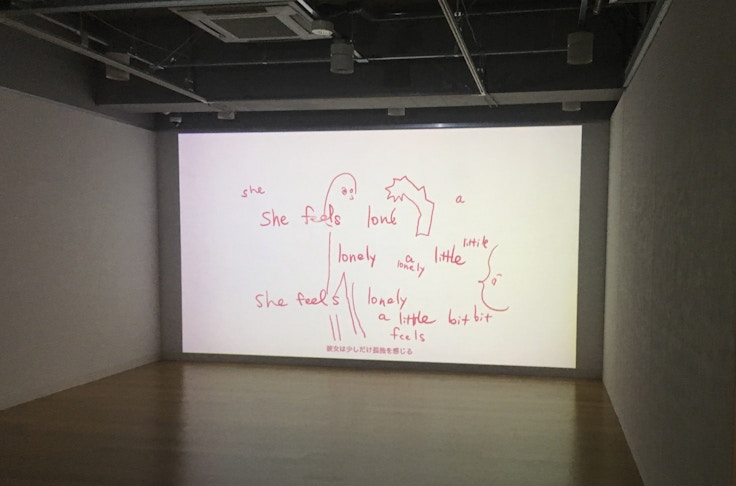 she
She feels lone a
lonely a lonely little little
She feels lonely
a little bit bit
feels
彼女は少しだけ孤独を感じる